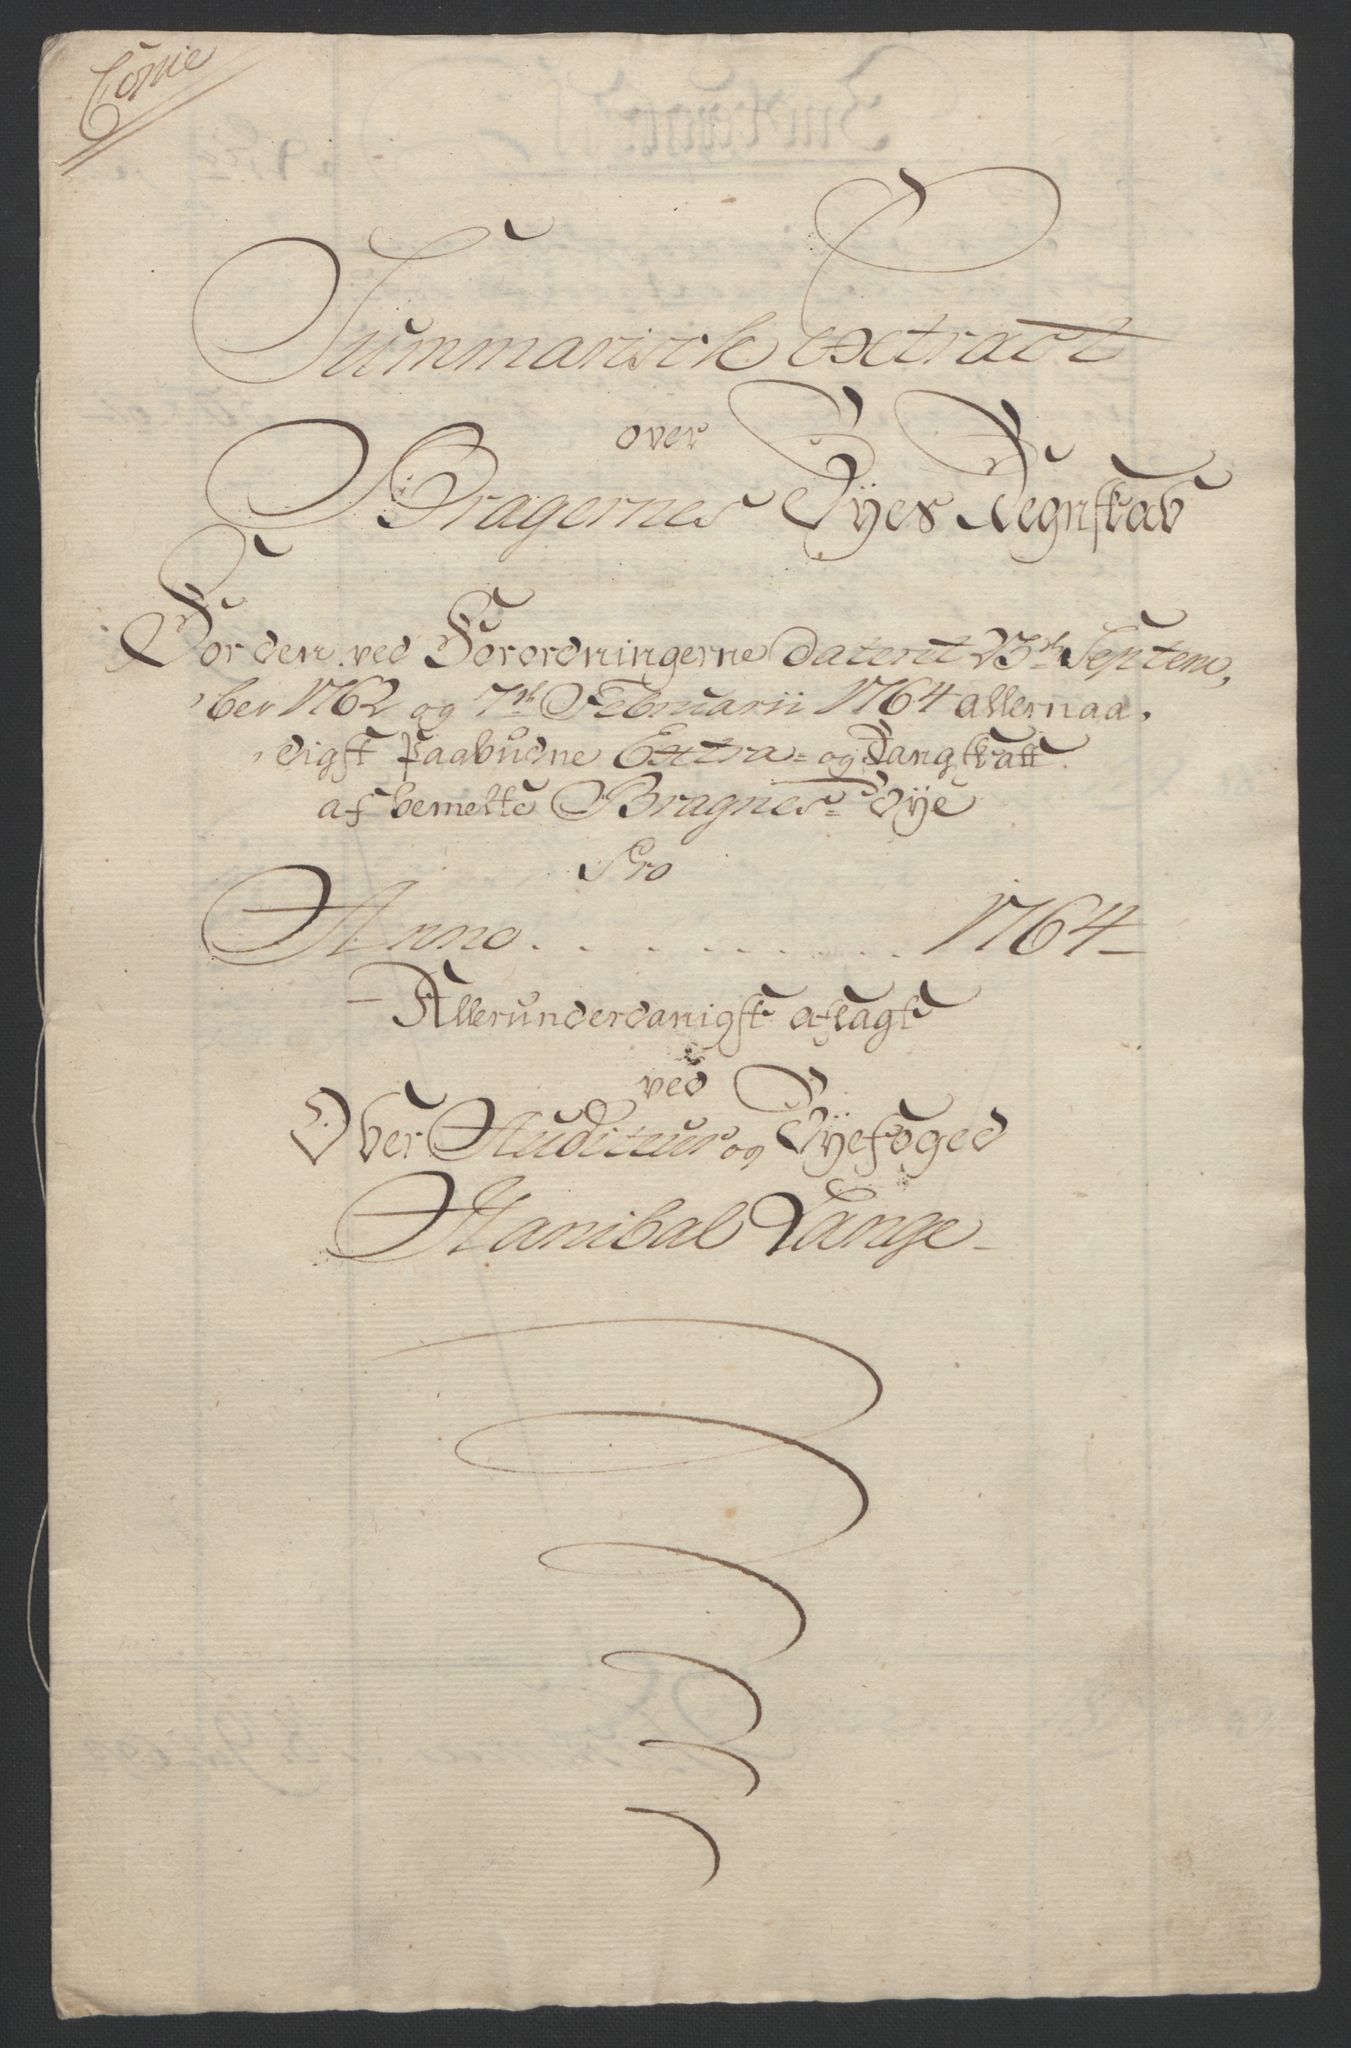 Copie
Summarisk Extract
over
Bragernes Byes Regnskab
For den ved Forordningerne daterit 23de Septem,
ber 1762 og 7de Februarii 1764 allernaa,
digst paabudne Extra- og Dangskatt
af bemelte Bragnes- Bye
Pro
Anno . . . . . . . . . . 1764-
- Allerunderdanigst aflagt
ved
Over Auditeur og Byefoged
Hanibal Lange-